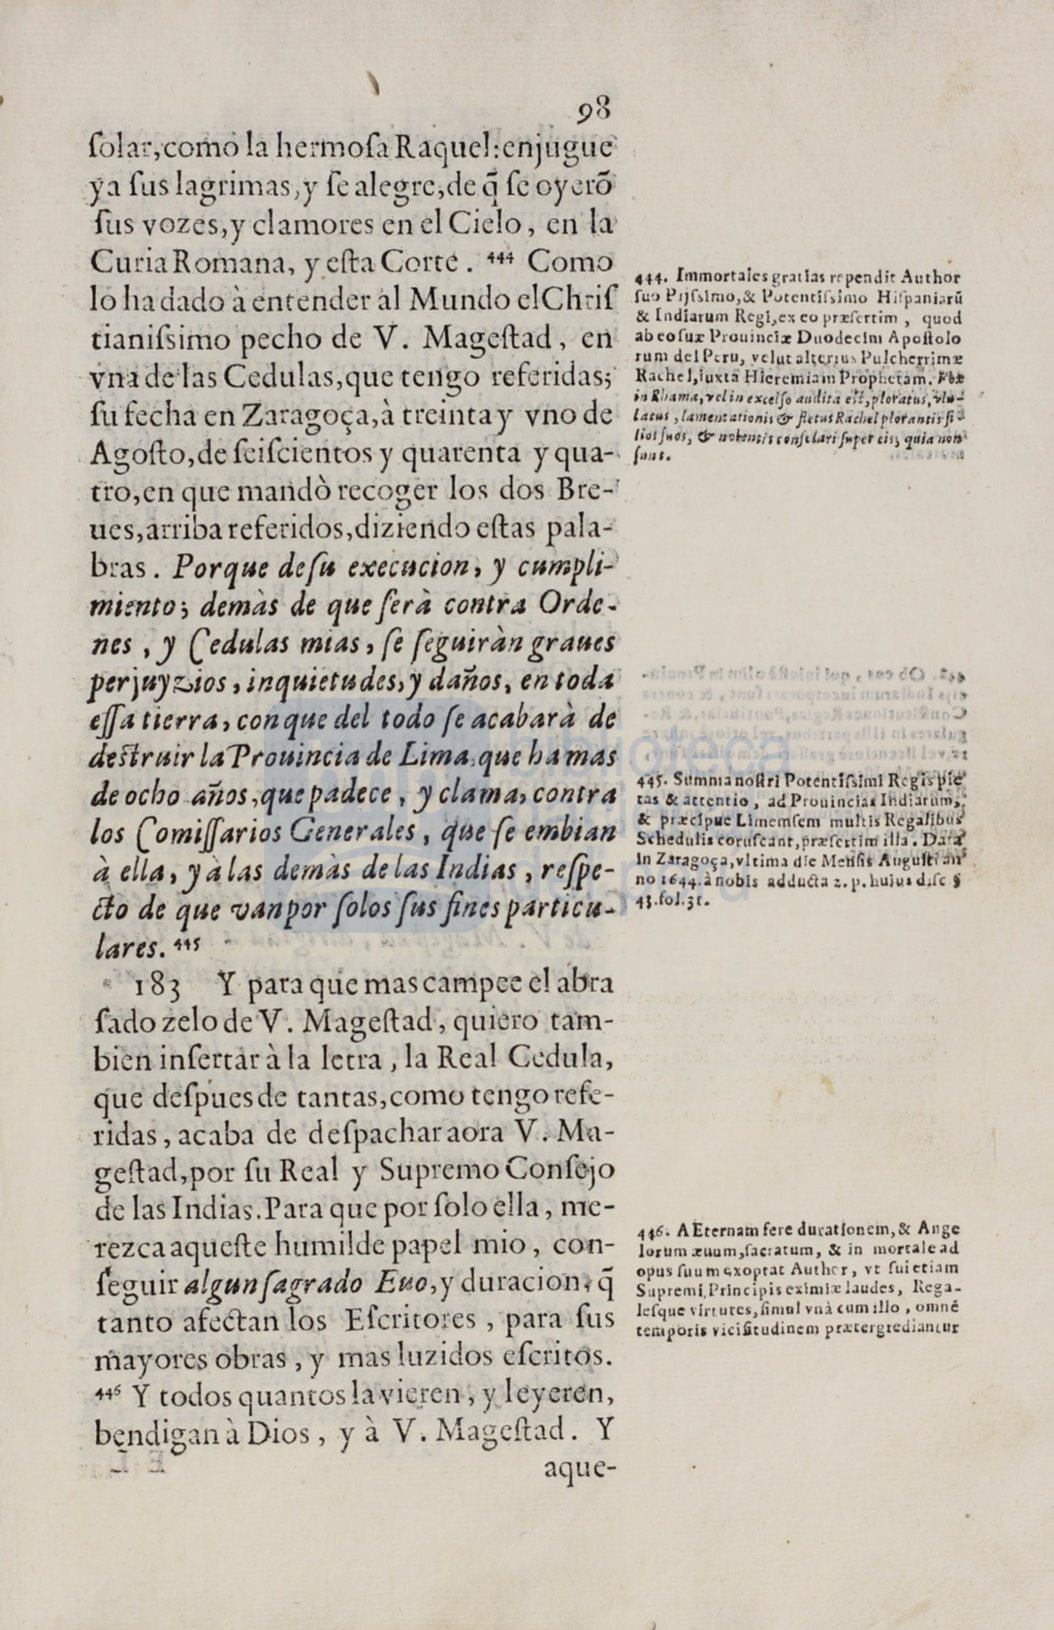 98
ſolar, como la hermoſa Raquel: enjugue
ya ſus lagrimas, y ſe alegre, de q̃ ſe oyerõ
ſus vozes, y clamores en el Cielo, en la
Curia Romana, y eſta Corte. 444 Como
lo ha dado à entender al Mundo el Chriſ
tianiſsimo pecho de V. Mageſtad, en
vna de las Cedulas, que tengo referidas;
ſu fecha en Zaragoça, à treinta y vno de
Agoſto, de ſeiſcientos y quarenta y qua-
tro, en que mandò recoger los dos Bre-
ues, arriba referidos, diziendo eſtas pala-
bras. Porque de ſu execucion, y cumpli-
miento; demàs de que ſerà contra Orde-
nes, y Cedulas mias, ſe ſeguiràn graues
perjuyzios, inquietudes, y daños, en toda
eſſa tierra, con que del todo ſe acabarà de
deſtruir la Prouincia de Lima, que ha mas
de ocho años, que padece, y clama, contra
los Comiſſarios Generales, que ſe embian
à ella, y à las demàs de las Indias, reſpe-
cto de que van por ſolos ſus fines particu-
lares. 445
183 Y para que mas campee el abra
ſado zelo de V. Mageſtad, quiero tam-
bien inſertar à la letra, la Real Cedula,
que deſpues de tantas, como tengo refe-
ridas, acaba de deſpachar aora V. Ma-
geſtad, por ſu Real y Supremo Conſejo
de las Indias. Para que por ſolo ella, me-
rezca aqueſte humilde papel mio, con-
ſeguir algun ſagrado Euo, y duracion, q̃
tanto afectan los Eſcritores, para ſus
mayores obras, y mas luzidos eſcritos.
446 Y todos quantos la vieren, y leyeren,
bendigan à Dios, y à V. Mageſtad. Y
aque-
444. Immortales gratias rependit Author
ſuo Pijſsimo, & Potentiſsimo Hiſpaniarũ
& Indiarum Regi, ex eo præſertim, quod
ab eo ſuæ Prouinciæ Duodecim Apoſtolo
rum del Peru, velut alterius Pulcherrimæ
Rachel, iuxta Hieremiam Prophetam. Vox
in Rhama, vel in excelſo audita eſt, ploratus, vlu-
latus, lamentationis & fletus Rachel plorantis fi-
lios ſuos, & nolentis conſolari ſuper eis, quia non
ſunt.
445. Summa noſtri Potentiſsimi Regis pie
tas & attentio, ad Prouincias Indiarum,
& præcipue Limemſem multis Regalibus
Schedulis coruſcant, præſertim illa. Data
in Zaragoça, vltima die Menſis Auguſti an
no 1644. à nobis adducta 2. p. huius diſc §
43. fol. 31.
446. AEternam fere durationem, & Ange
lorum æuum, ſacratum, & in mortale ad
opus ſuum exoptat Author, vt ſui etiam
Supremi Principis eximiæ laudes, Rega-
leſque virtutes, ſimul vnà cum illo, omnē
temporis viciſitudinem prætergrediantur
biblioteca